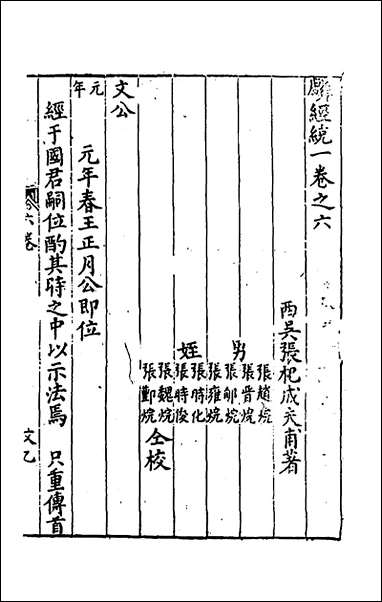 麟經統一卷之六
西吳張杞成夫甫著
男
張趙烷
張晋烷
張郇烷
張雍烷
姪
張時化
張時俊
張魏烷
張酆烷
仝校
文公
元年
元年春王正月公即位
經于國君嗣位酌其時之中以示法焉 只重傳首
六卷
文乙